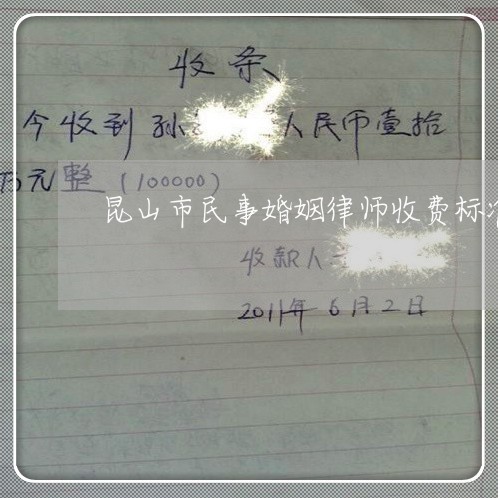 收条
今收到 孙 人民币壹拾
万元整 (100000)
昆山市民事婚姻律师收费标准
收款人
2011年6月2日